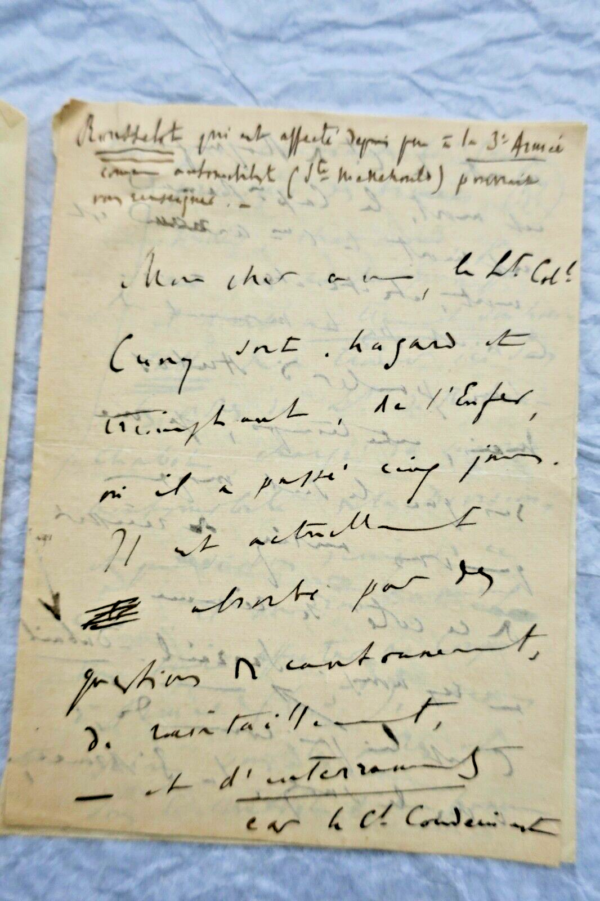 Rousselot qui est affecté depuis peu à la 3e Armée
comme automobilist (Ste Menehould) pourrait
vous renseigner. _
Mon cher ami, le Lt Coll
Cuny sort, hagard et
triomphant, de l'Enfer,
où il a passé cinq jours.
Il est actuellement
absorbé par des
questions de cantonnement,
de ravitaillement,
_ et d'enterrements
car le Ct